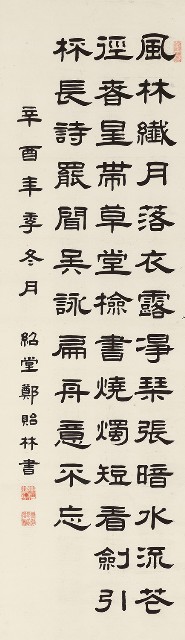 風林纖月落衣露淨琹張暗水流花
徑春星帶草堂檢書燒燭短看劍引
杯長詩罷聞吳詠扁舟意不忘
辛酉年季冬月 紹堂鄭貽林書